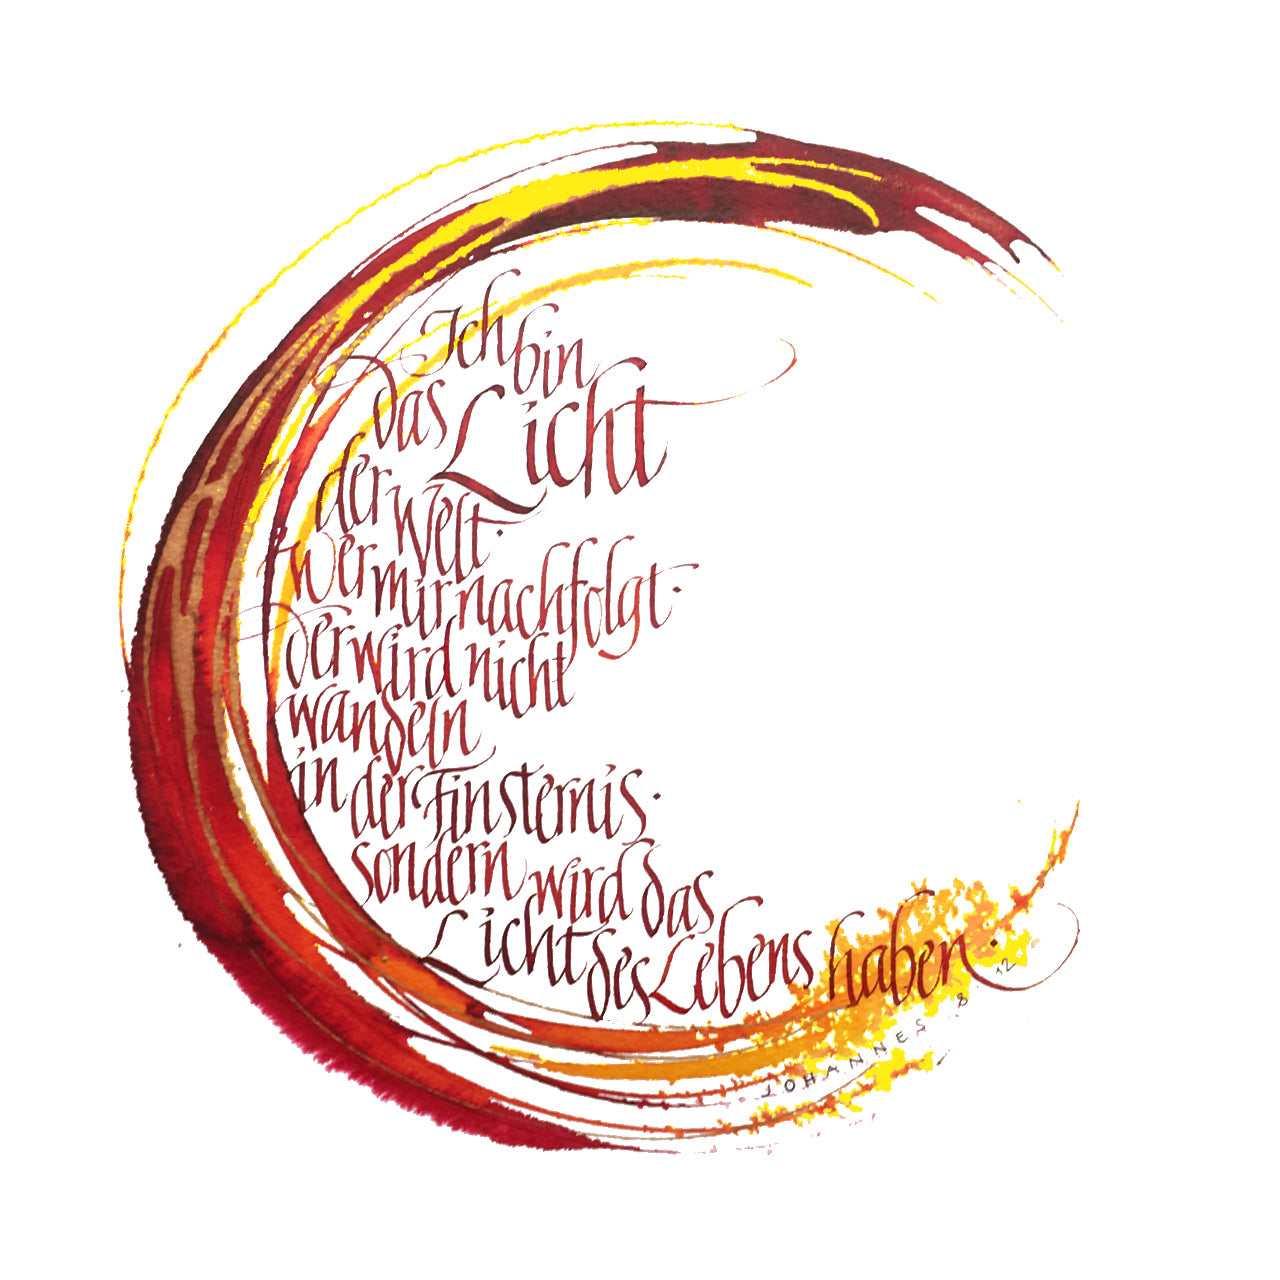 Ich bin
das Licht
der Welt.
wer mir nachfolgt.
der wird nicht
wandeln
in der Finsternis.
sondern wird das
Licht des Lebens haben.
JOHANNES 8 12